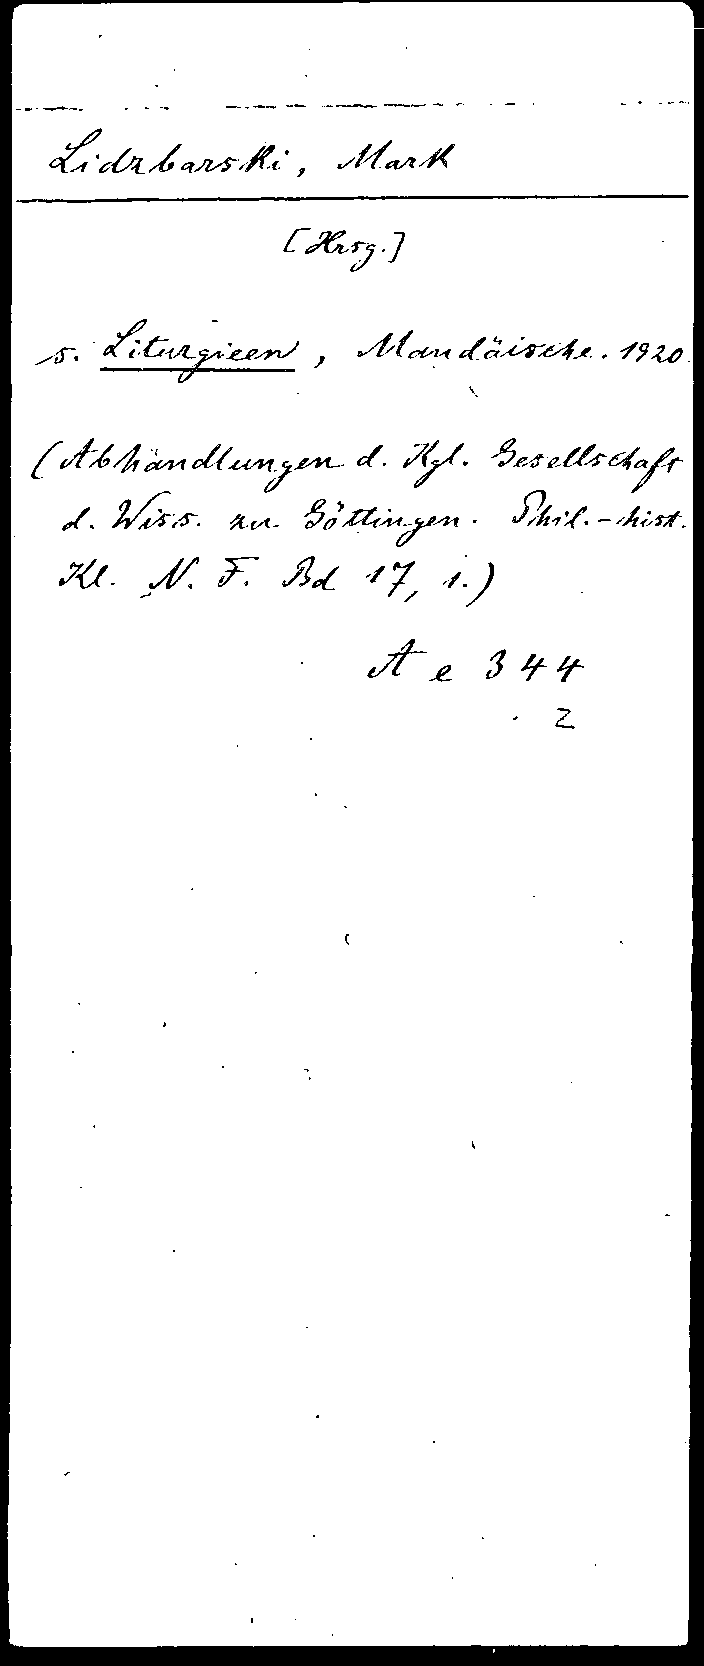 Lidzbarski, Mark
[Hrsg.]
s. Liturgieen, Mandäische. 1920
(Abhandlungen d. Kgl. Gesellschaft
d. Wiss. zu Göttingen. Phil.-hist.
Kl. N. F. Bd 17, 1.)
A e 344
2